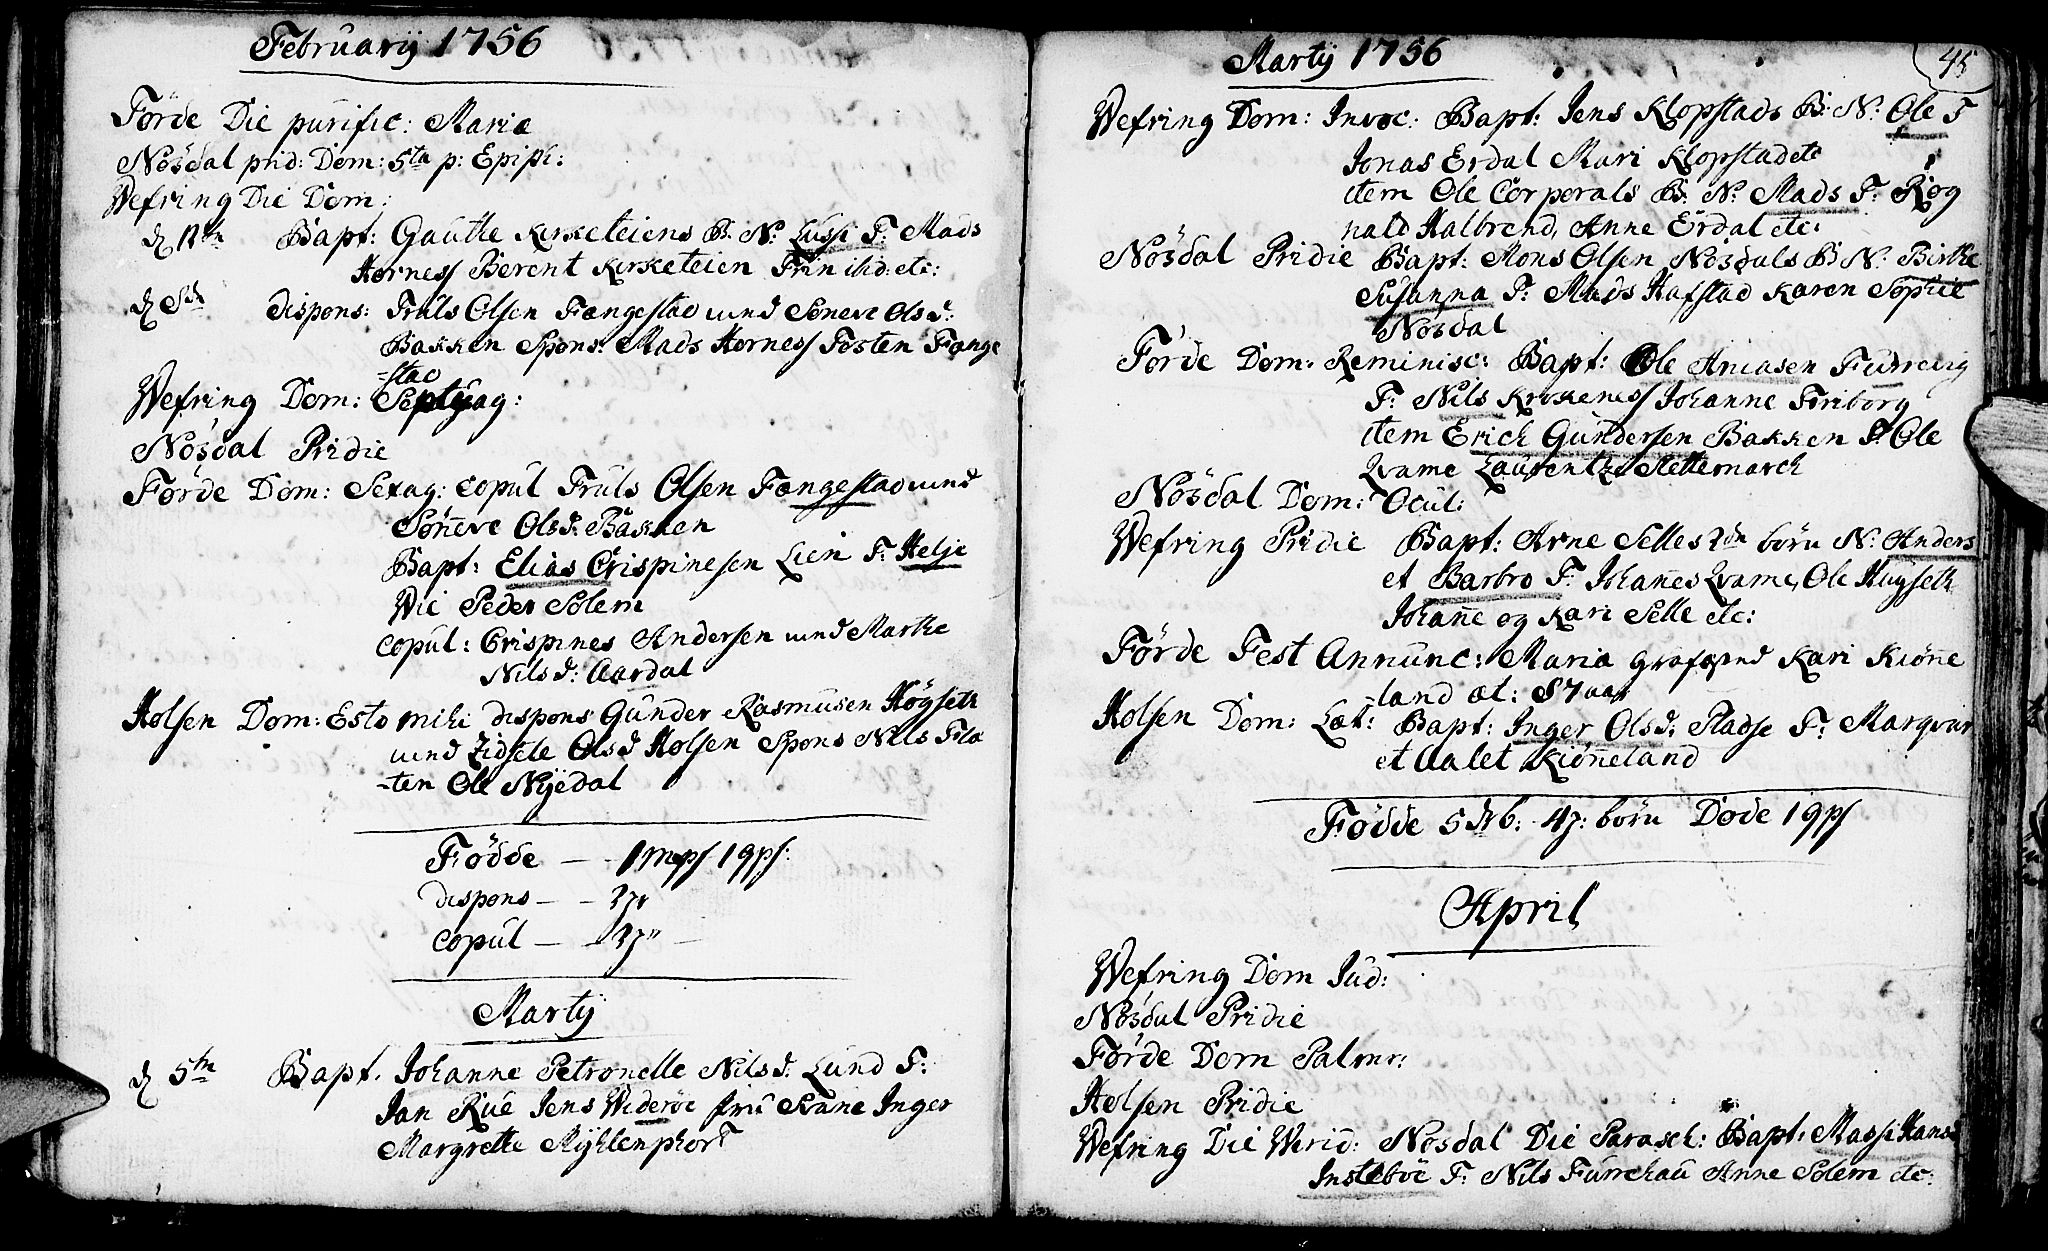 Februarij 1756
Förde Die purific: Mariæ
Nösdal prid: Dom: 5ta p: Epiph:
Wefring Die Dom:
Bapt: Gauthe Kirketeiens B. N. Lussi F: Mads
Hornes Berent Kirketeien etc:
dispons: Truls Olsen Fangestad und Söneve Ols d:
Bakken Spons: Mads Hornes Tosten Fange
-stad
Wefring Dom: Septuag:
Nösdal Pridie
Förde Dom: Sexag: copul Truls Olsen Fangestad und
Söneve Olsd: Bakken
Bapt: Elias Crispinesen Lien F: Helje
Wie Peder Solem
copul: Crispines Andersen und Marthe
Nilsd: Aardal
Holsen Dom: Esto mihi dispons Gunder Rasmusen Högseth
und Zidsele Olsd Holsen Spons Nils Fila
-ten Ole Nyedal
Födde — 19ps:
dispons —
copul —
Martij
d 5te Bapt. Johanne Petronelle Nilsd: Lund F:
Jan Rue Jens Wideröe Inger
Margrethe Myhlenphort
45
Martij 1756
Wefring Dom: Invoc: Bapt: Jens Klopstads B: N: Ole F
Jonas Erdal Mari Klopstad etc
item Ole Corporals B. N: Mads F: Rog
nald Halbrend, Anne Erdal etc:
Nösdal Pridie Bapt: Mons Olsen Nösdals B N: Birthe
Susanna F: Mads Hafstad Karen Sophie
Nösdal
Förde Dom: Reminisc: Bapt: Ole Aniasen
F: Nils Krokenes Johanne Foriborg
item Erich Gundersen Bakken F: Ole
Qvame Laurentze Slettemarch
Nösdal Dom: Ocul:
Wefring Pridie Bapt: Arne Selles börn N: Anders
et Barbro F: Johañes Qvame, Ole Huyseth
Johañe og Kari Selle etc:
Förde Fest Annunc: Maria Kari Kiöñe
-land æt: 87 aar
Holsen Dom: Læt: Bapt: Inger Olsd: Pladse F: Marqvar
et Aalet Kiöñeland
Födde 5 börn Döde 19ps
April
Wefring Dom Jud:
Nösdal Pridie
Förde Dom Palmr:
Holsen Pridie
Wefring Die Wirid: Nösdal Die Parasch: Bapt: Massi Hansd
Insteböe F: Nils Anne Solem etc: